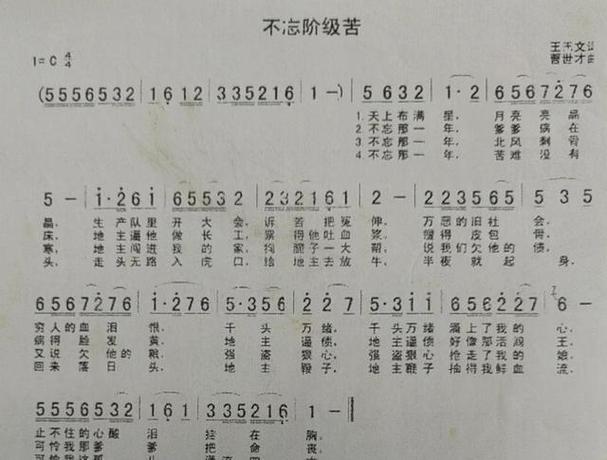 不忘阶级苦
1=C 4/4
王 文
曹世才 曲
(5 5 5 6 5 3 2 | 1 6 1 2 | 3 3 5 2 1 6 | 1 —) | 5 6 3 2 | 1·2 | 6 5 6 7 2 7 6
1.天上布满 星, 月亮亮晶
2.不忘那一 年, 爹爹病在
3.不忘那一 年, 北风刺骨
4.不忘那一 年, 苦难没有
5 — | 1·2 6 1 | 6 5 5 3 2 | 2 3 2 1 6 1 | 2 — | 2 2 3 5 6 5 | 5 3 5
晶, 生产队里 开大会, 诉苦把冤 伸, 万恶的旧社 会,
床, 地主逼他 做长工, 累得他吐血 浆, 瘦得皮包 骨,
寒, 地主闯进 我的家, 狗腿子一大 帮, 说我们欠他的 债,
头, 走头无路 入虎口, 给地主去放 牛, 半夜就起 身,
6 5 6 7 2 7 6 | 1·2 7 6 | 5·3 5 6 | 2 2 7 | 5·3 1 1 | 6 5 6 2 2 7 | 6 —
穷人的血泪 恨, 千头 万绪, 千头万绪 涌上了我的 心,
病得脸发 黄, 地主 逼债, 地主逼债 好像那活阎 王,
又说欠他的 粮, 强盗 狠心, 强盗狠心 抢走了我的 娘,
回来落日 头, 地主 鞭子, 地主鞭子 抽得我鲜血 流,
5 5 5 5 6 5 3 2 | 1 6 1 2 | 3 3 5 2 1 6 | 1 — ‖
止不住的心酸 泪 挂在 胸。
可怜我那 爹 把命 丧。
可怜我这孤